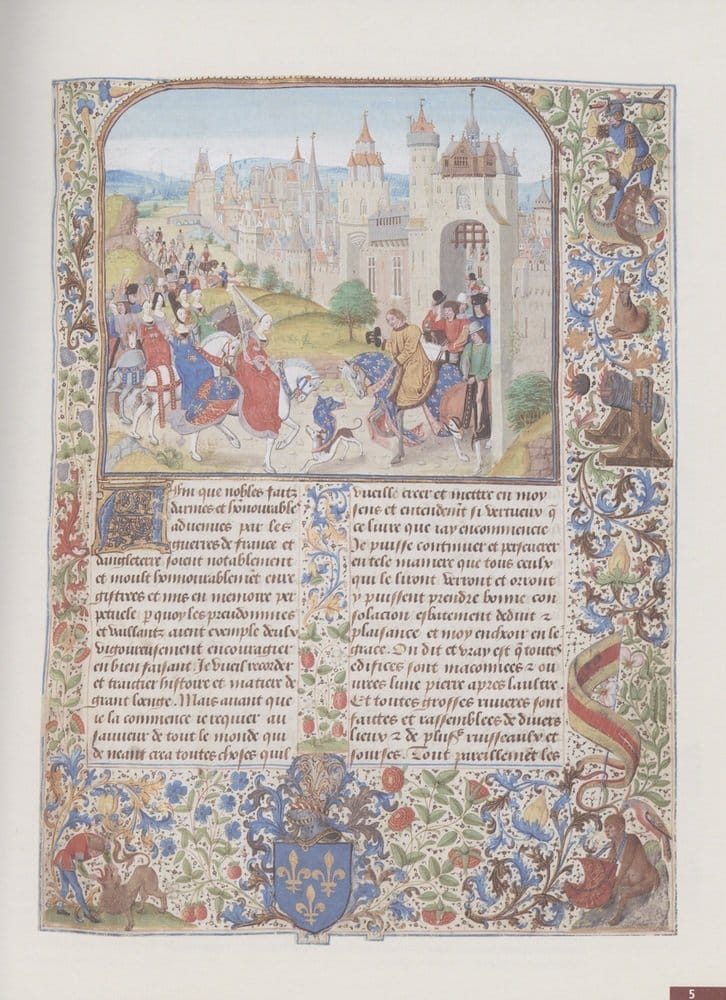 Afin que nobles faitz
darmes et honnourables
aduenues par les
guerres de france et
dangleterre soient notablement
et moult honnourablemēt enre
gistrees et mis en memoire per
petuele p quoy les preudommes
et vaillantz aient exemple deulx
vigoureusement encouragier
en bien faisant. Je vueil recorder
et traictier histoire et matiere de
grant loenge. Mais auant que
ie la commence ie requier au
sauueur de tout le monde que
de neant crea toutes choses quil
vueille creer et mettre en moy
sens et entendemt si vertueux q̄
ce liure que iay encommencie
Je puisse continuer et perseuerer
en tele maniere que tous ceulx
qui le liront verront et orront
y puissent prendre bonne con
solacion esbatement deduit ⁊
plaisance et moy encheoir en le
grace. On dit et vray est q̄ toutes
edifices sont maconnees ⁊ ou
urees lune pierre apres laultre.
Et toutes grosses riuieres sont
faittes et rassemblees de diuers
lieux ⁊ de plusˢ ruisseaulx et
sourses. Tout pareillement les
5